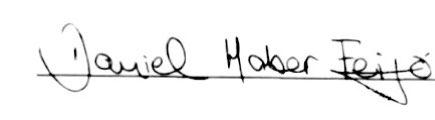 Daniel Haber Feijó